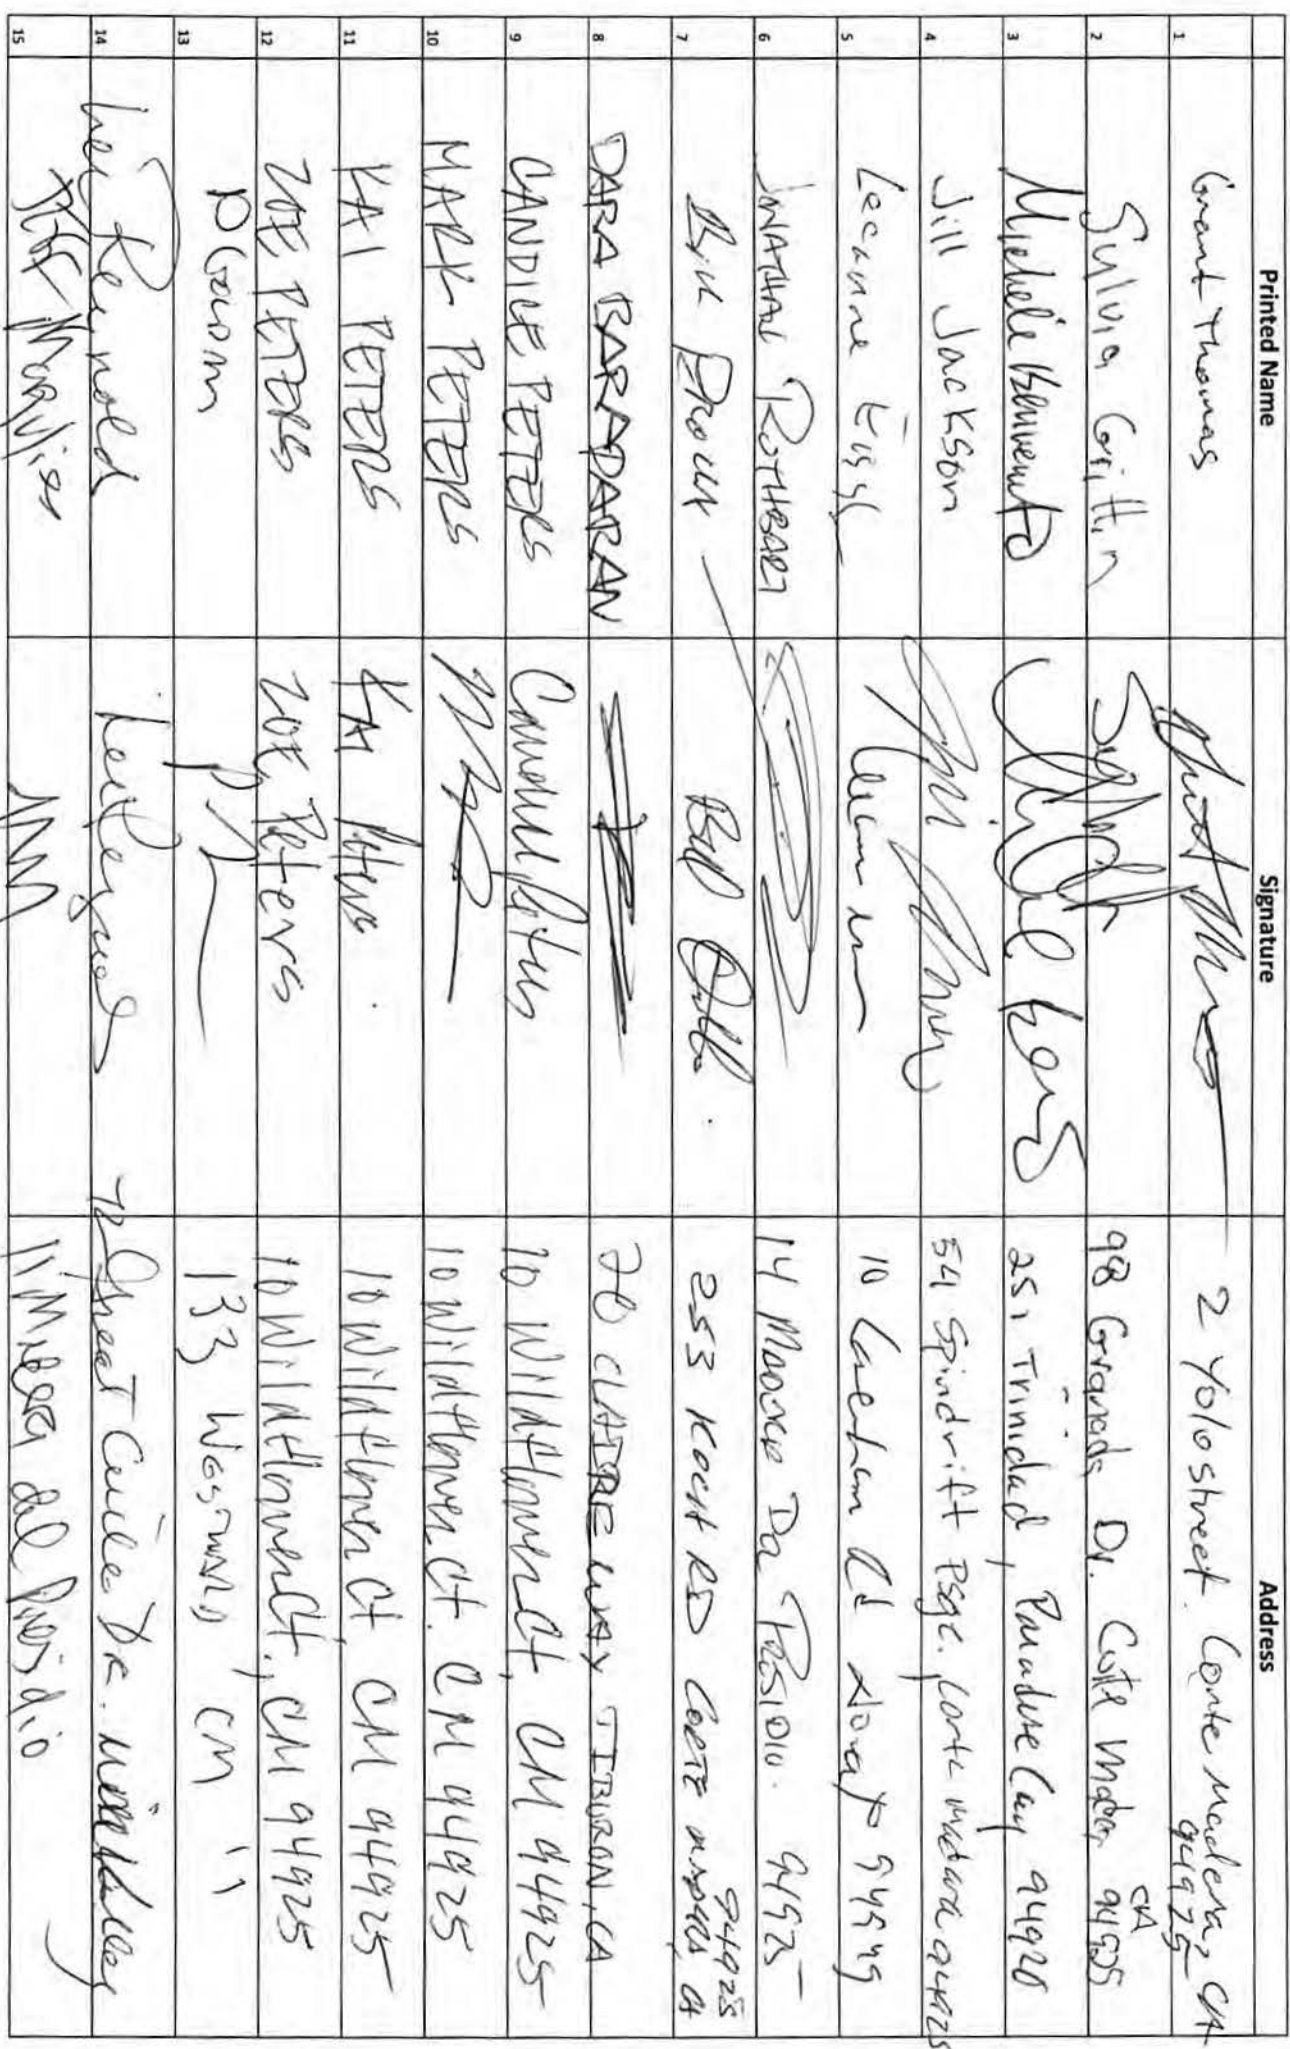 Printed Name Signature Address
1 Grant Thomas 2 Yolo street. Corte Madera, CA
94925
2 Sylvia Griffin 98 Granada Dr. Corte Madera CA 94925
3 Michele Benvenuto 251 Trinidad, Paradise Cay 94920
4 Jill Jackson 54 Spindrift Psge. Corte Madera 94925
5 Leeanne 10 Rd Novato 94949
6 JONATHAN ROTHBART 14 Da PRESIDIO. 94925
7 Bill Brown 253 KOCH RD CORTE MADERA, CA
94925
8 DARA BARADARAN 70 CLAIRE WAY TIBURON, CA
9 CANDICE PETERS Candice Peters 10 Wildflower Ct, CM 94925
10 MARK PETERS 10 Wildflower Ct. CM 94925
11 KAI PETERS KAI Peters 10 Wildflower Ct, CM 94925
12 ZOE PETERS ZOE Peters 10 Wildflower Ct., CM 94925
13 133 CM "
14 Reynold Dr. Mill Valley
15 11 del Presidio